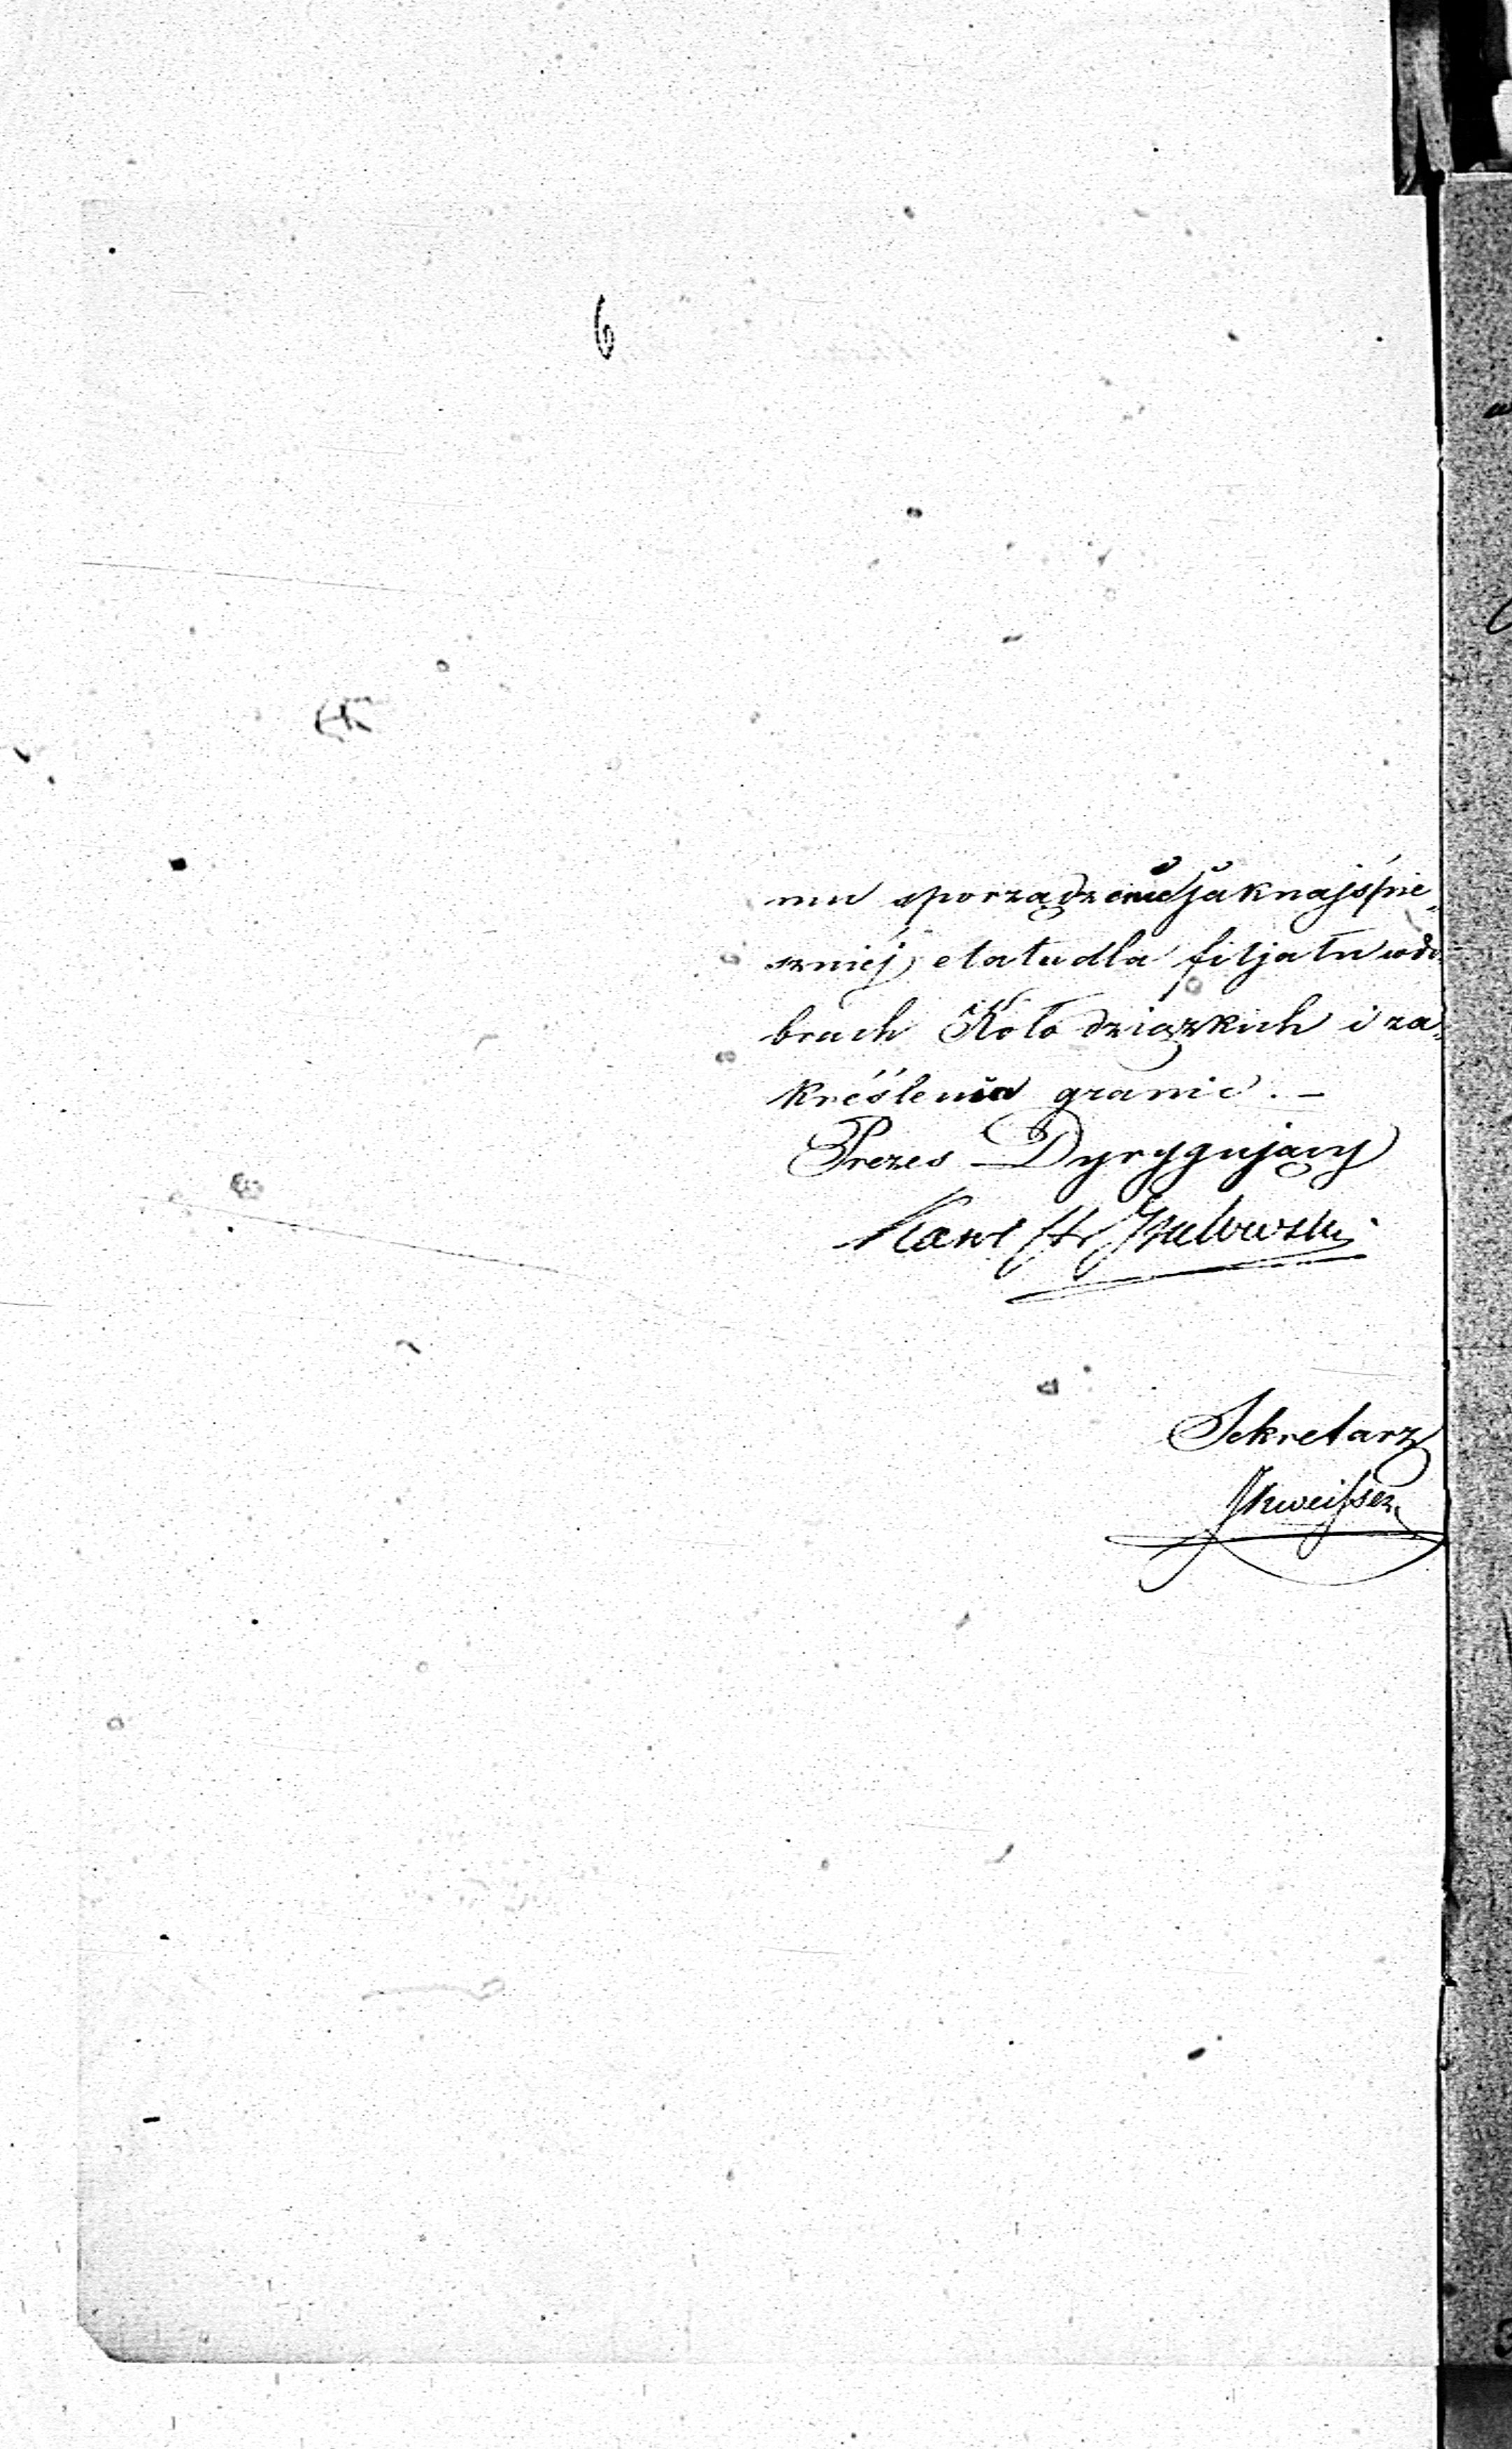 6
mu sporządzenie jaknajśpie„
szniéj etatu dla filjału w do„
brach Kołodziązkich i za„
kréślenia granic. —
Prezes Dyrygujący
Sekretarz